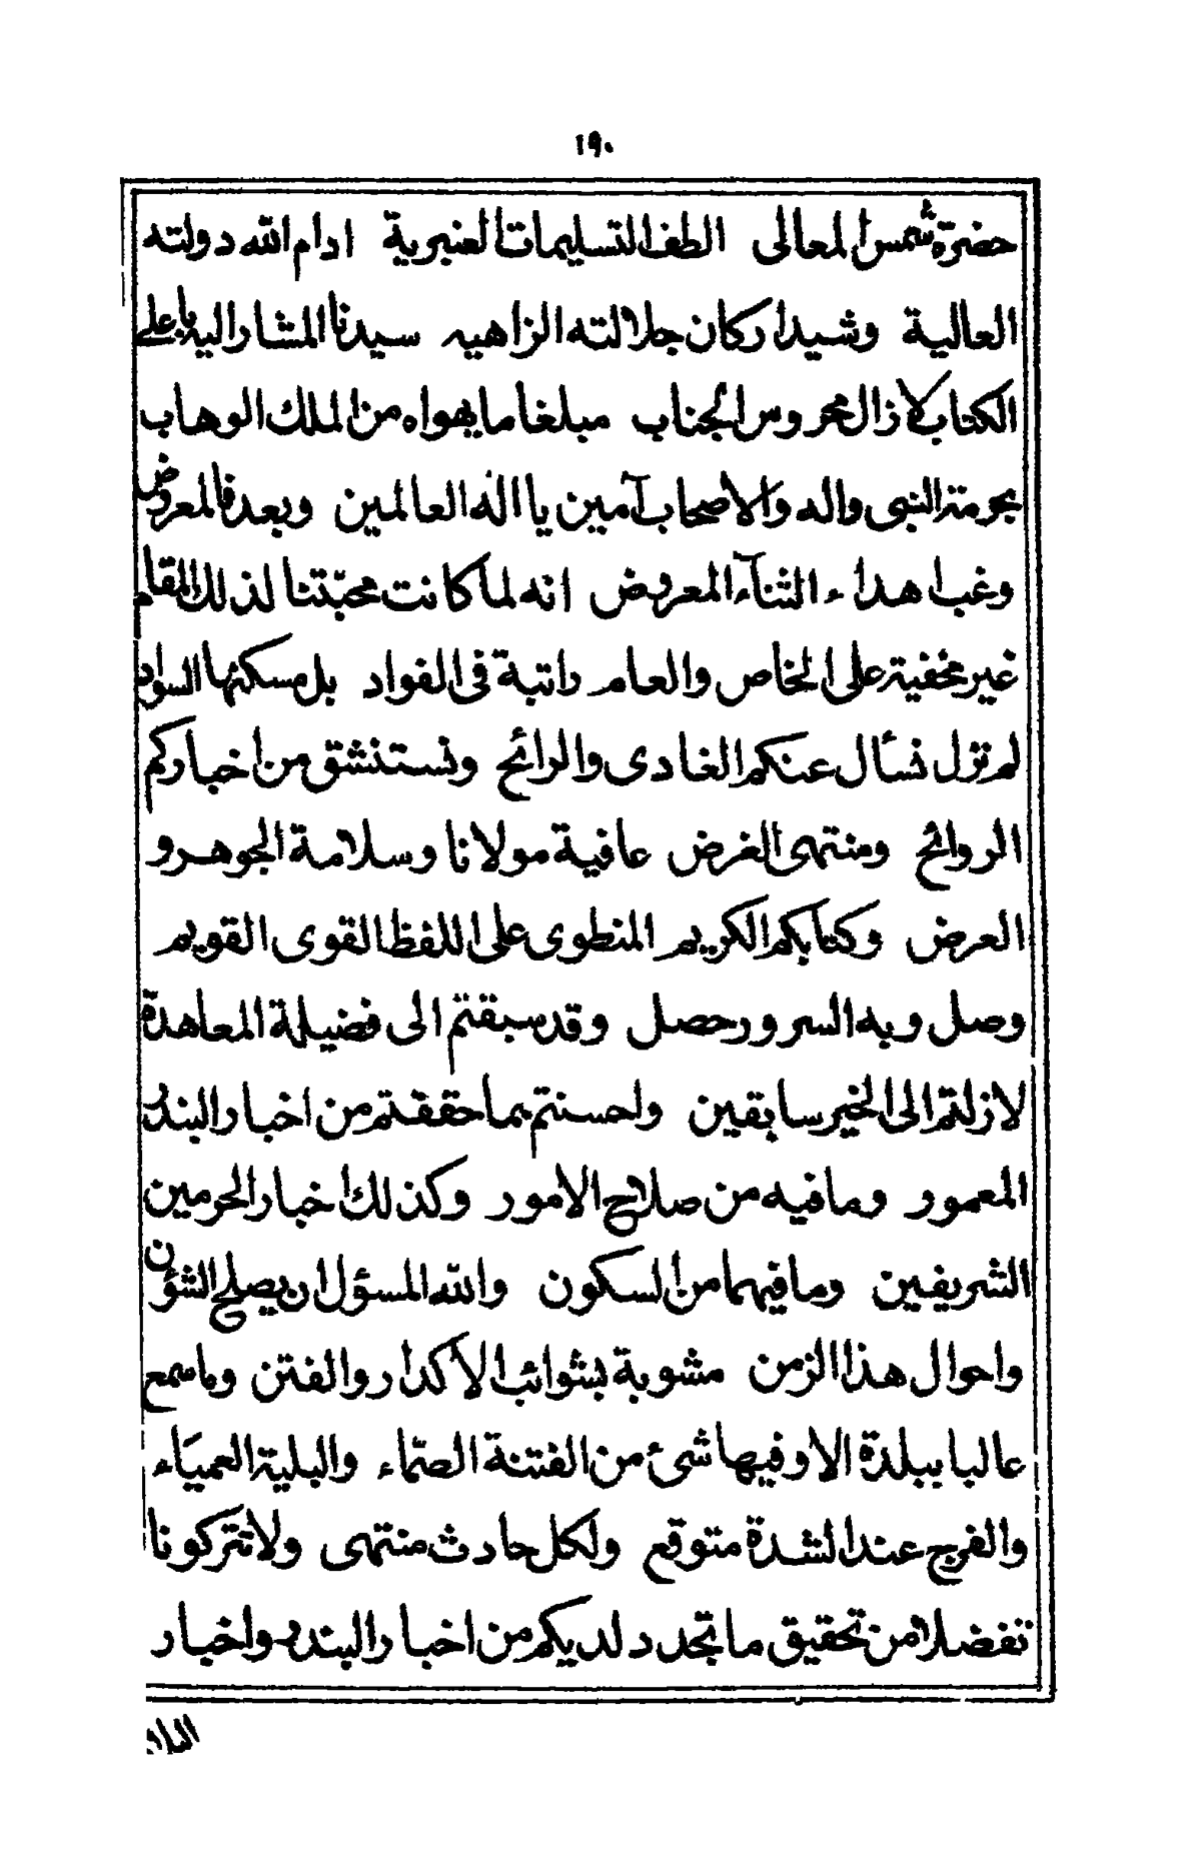 ١٩٠
حضرة شمس المعالى الطف التسليمات العنبرية ادام الله دولته
العالية وشيد اركان جلالته الزاهيه سيدنا المشار اليه باعلى
الكتاب لازال محروس الجناب مبلغا ما يهواه من الملك الوهاب
بحرمة النبى واله والاصحاب آمين يا اله العالمين وبعد فالمعروض
وغب اهداء الثنآء المعروض انه لما كانت محبّتنا لذلك المقام
غير مخفية على الخاص والعام راتبة فى الفواد بل مسكنها السواد
لم نزل نسأل عنكم الغادى والرائح ونستنشق من اخباركم
الروائح ومنتهى الغرض عافية مولانا وسلامة الجوهر و
العرض وكتابكم الكريم المنطوى على اللفظ القوى القويم
وصل وبه السرور حصل وقد سبقتم الى فضيلة المعاهدة
لازلتم الى الخير سابقين واحسنتم بما حققتم من اخبار البندر
المعمور وما فيه من صلاح الامور وكذلك اخبار الحرمين
الشريفين وما فيهما من السكون والله المسؤل ان يصلح الشؤن
واحوال هذا الزمن مشوبة بشوائب الأكدار والفتن وما سمع
عالبا ببلدة الا وفيها شئ من الفتنة الصّماء والبلية العميَاء
والفرج عند الشدة متوقع ولكل حادث منتهى ولا تتركونا
تفضلا من تحقيق ما تجدد لديكم من اخبار البندر واخبار